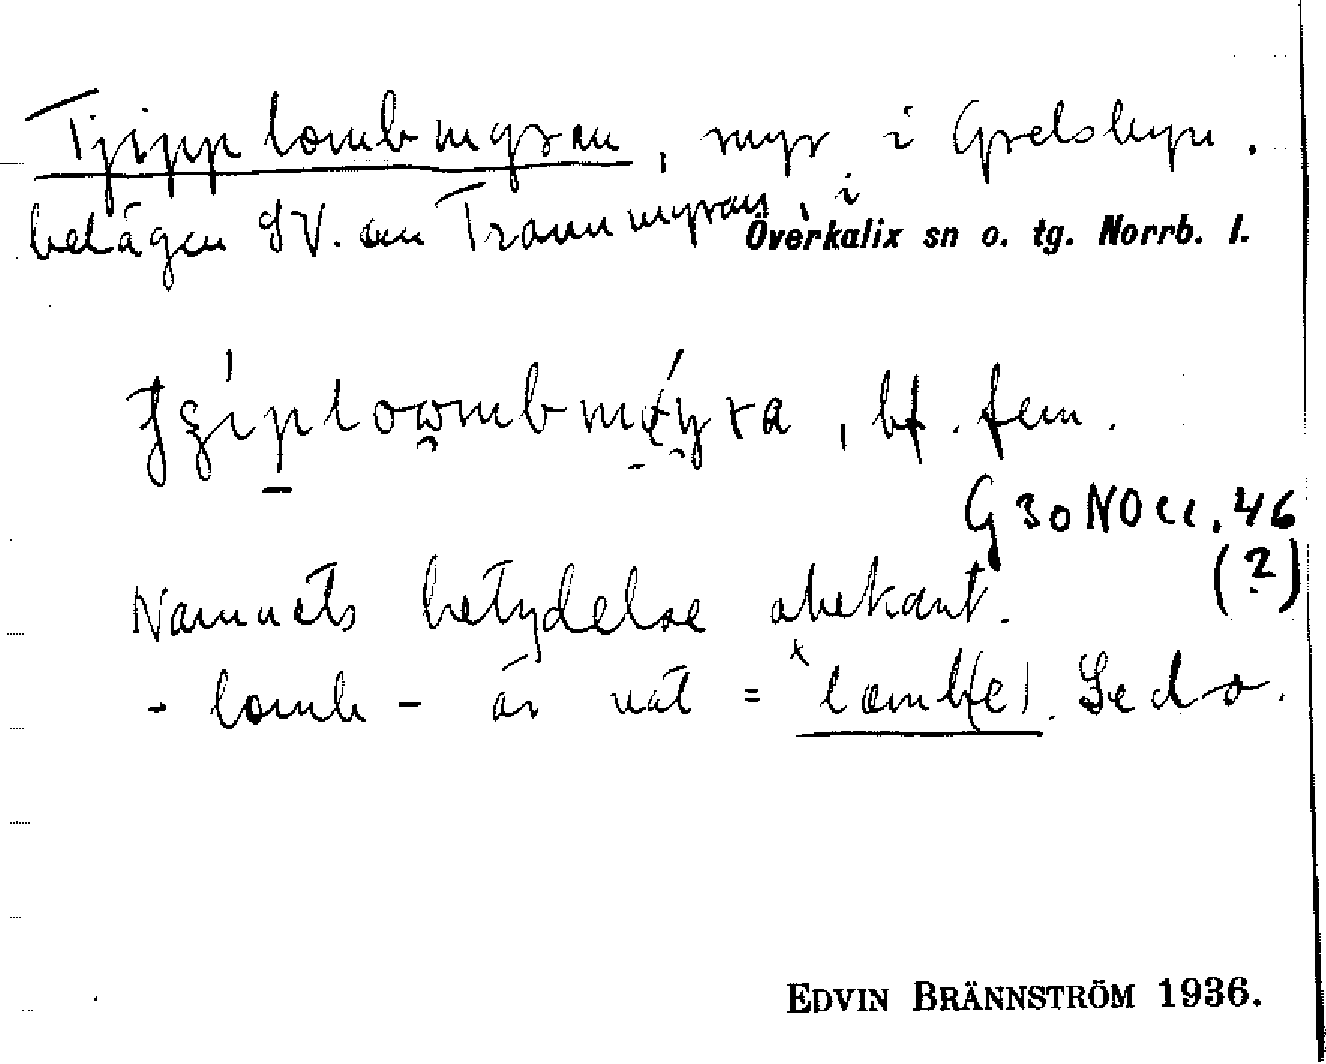 Tjipplombmyran, myr i Grelsbyn.
belägen SV. om Tranumyran, i
Överkalix sn o. tg. Norrb. l.
bf. fem.
G 30 NO cc. 46
(?)
Namnets betydelse obekant.
- lomb - är väl = lomb(e). Se d. o.
EDVIN BRÄNNSTRÖM 1936.